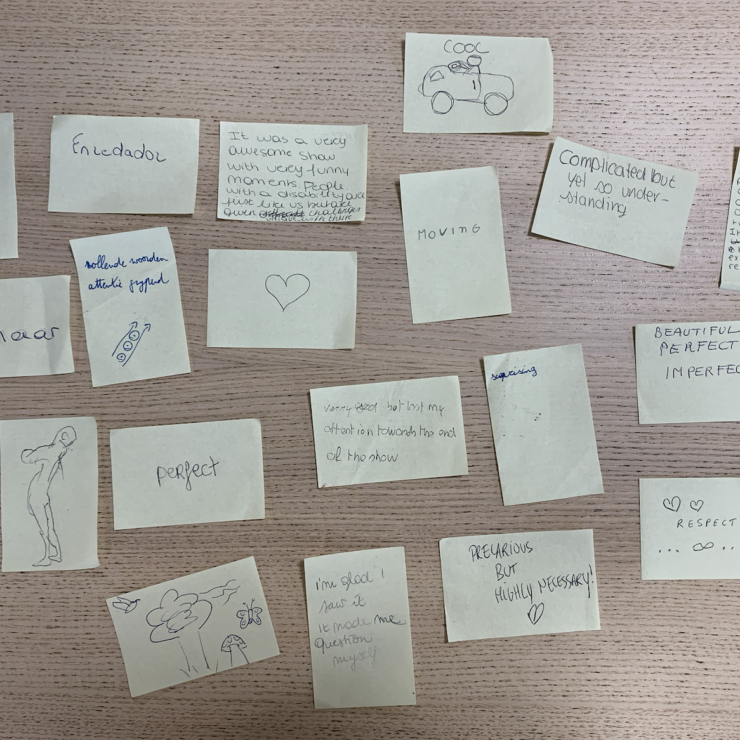 COOL
Enredador
It was a very
awesome show
with very funny
moments. People
with a disability are
just like us but are
given challenges
Complicated but
yet so under-
standing
MOVING
rollende woorden
attentie grypend
BEAUTIFUL
PERFECT
IMPERFEC
surprising
very good but lost my
attention towards the end
of the show
perfect
RESPECT
... ∞ ..
PRECARIOUS
BUT
HIGHLY NECESSARY!
i'm glad i
saw it
it made me
question
myself